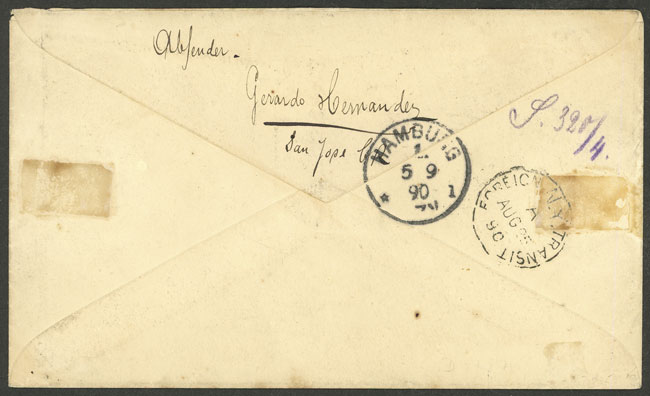 Absender.
Gerardo Hernandez
San Jose
S. 320/4.
HAMBURG
1
5 9
90
* 1
FOREIGN N.Y. TRANSIT
A
AUG 25
90